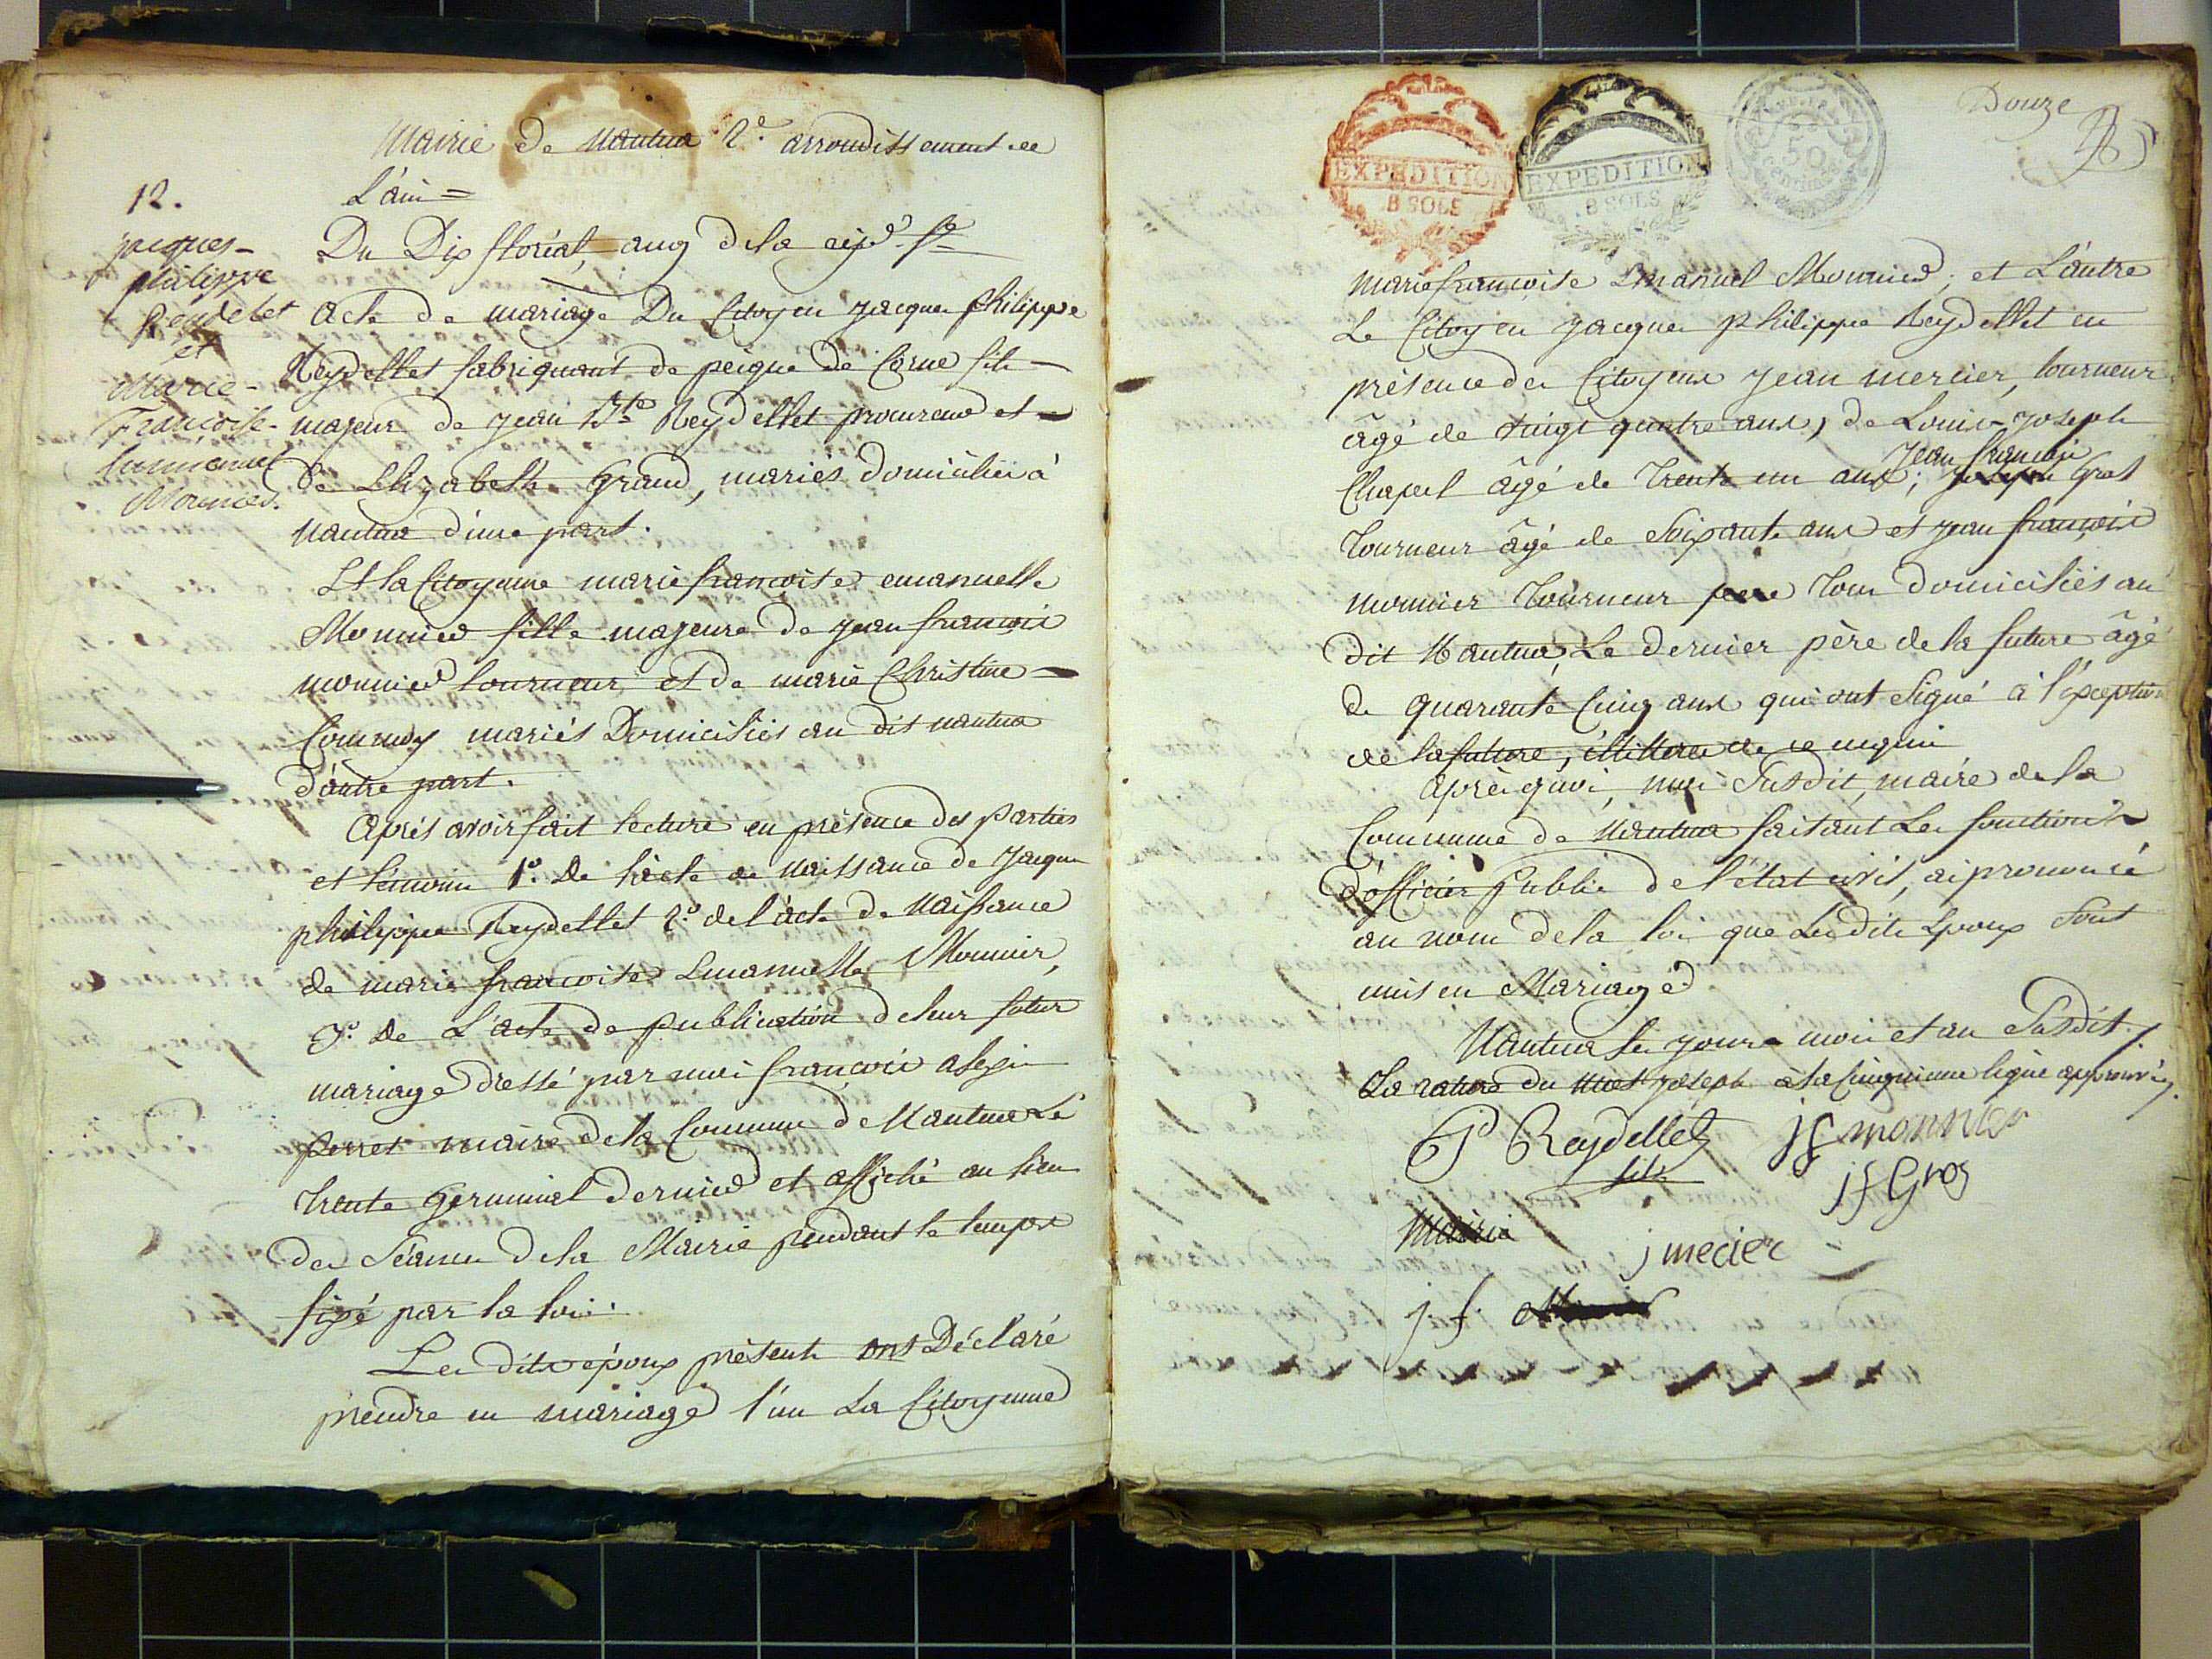 Mairie de Nantua 2e. arrondissement de
L'ain =
12.
jacques-
philippe
Reydelet
et
Marie-
Françoise-
Emmanuel
Mounier.
Du Dix floréal, an 9 de la répe. fse
Acte de mariage Du Citoyen jacques philippe
Reydellet fabriquant de peigne de Corne fils
majeur de jean Bte Reydellet procureur et
de Elizabeth Grand, mariés domiciliés à
Nantua d'une part.
Et la Citoyenne marie francoise emanuelle
Monnier fille majeure de jean francois
monnier tourneur, et de marie Christine
mariés Domiciliés au dit nantua
d'autre part.
Après avoir fait lecture en présence des parties
et témoins 1°. De l'acte de naissance de Jacques
philippe Reydellet 2°. de l'acte de Naissance
de marie francoise Emanuelle Monnier,
3°. de L'acte de publication de leur futur
mariage dressé par moi francois
perret maire de la Commune de Nantua Le
trente germinal dernier et affiché au lieu
des séances de la Mairie pendant le temps
fixé par la loi.
Les dits époux présents ont Déclaré
prendre en mariage l'un La Citoyenne
EXPEDITION
8 SOLS
EXPEDITION
8 SOLS
50
centimes
Douze
marie francoise Emanuel Monnier; et L'autre
Le Citoyen jacques philippe Reydellet en
présence des Citoyens jean mercier, tourneur
âgé de vingt quatre ans, de Louis-joseph
Chapel âgé de trente un ans; jean francois Gros
tourneur âgé de soixante ans et jean francois
monnier tourneur tous domiciliés au
dit Nantua, Le dernier père de la future âgé
de quarante cinq ans qui ont signé à l'exception
de la future, illitéré de ce requis
après quoi, moi Susdit, maire de la
Commune de Nantua faisant Les fonctions
d'officier public de l'état civil, ai prononcé
au nom de la loi que Lesdits Epoux sont
unis en Mariage
Nantua Les jour mois et an Susdit.
La rature du mot joseph à la cinquieme ligne approuvée.
Reydellet
fils
jf monnier
jf Gros
Mairie
j mecier
j. f.